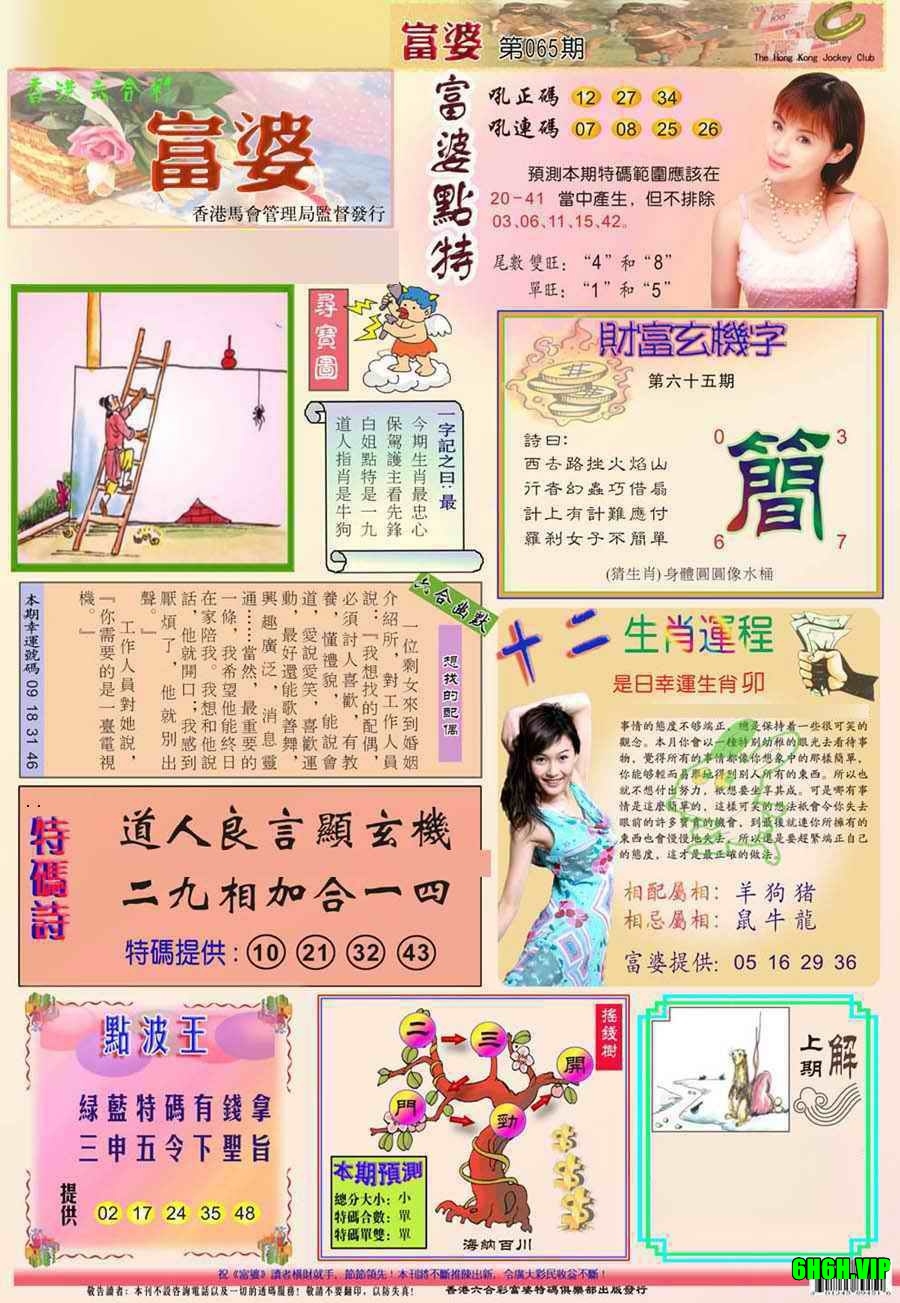 富婆 第065期
The Hong Kong Jockey Club
香港六合彩
富婆
香港馬會管理局監督發行
富婆點特
吼正碼 12 27 34
吼連碼 07 08 25 26
預測本期特碼範圍應該在
20-41 當中產生，但不排除
03、06、11、15、42。
尾數 雙旺：“4”和“8”
單旺：“1”和“5”
尋寶圖
一字記之曰：最
今期生肖最忠心
保駕護主看先鋒
白姐點特是一九
道人指肖是牛狗
財富玄機字
第六十五期
詩曰:
西去路挫火焰山
行者幻蟲巧借扇
計上有計難應付
羅刹女子不簡單
0 3
簡
6 7
(猜生肖)身體圓圓像水桶
六合幽默
想找的配偶
一位剩女來到婚姻
介紹所，對工作人員
說：『我想找的配偶，
必須討人喜歡，有教
養，懂禮貌，能說會
道，愛說愛笑，喜歡運
動，最好還能歌善舞，
興趣廣泛，消息靈
通……當然，最重要的
一條，我希望他能終日
在家陪我。我想和他說
話，他就開口；我感到
厭煩了，他就別出
聲。』
工作人員對她說，
『你需要的是一臺電視
機。』
本期幸運號碼 09 18 31 46
十二生肖運程
是日幸運生肖 卯
事情的態度不够端正，總是保持着一些很可笑的
觀念。本月你會以一種特别幼稚的眼光去看待事
物，覺得所有的事情都像你想象中的那樣簡單，
你能够輕而易舉地得到别人所有的東西。所以也
就不想付出努力，衹想要坐享其成。可是哪有事
情是這麼簡單的，這樣可笑的想法衹會令你失去
眼前的許多寶貴的機會，到最後就連你所擁有的
東西也會慢慢地失去，所以還是要趕緊端正自己
的態度，這才是最正確的做法。
相配屬相：羊狗豬
相忌屬相：鼠牛龍
富婆提供：05 16 29 36
特碼詩
道人良言顯玄機
二九相加合一四
特碼提供：10 21 32 43
點波王
綠藍特碼有錢拿
三申五令下聖旨
提供 02 17 24 35 48
搖錢樹
二 三 開
門 勁
本期預測
總分大小：小
特碼合數：單
特碼單雙：單
海納百川
上期解
祝《富婆》讀者橫財就手，節節領先！本刊將不斷推陳出新，令廣大彩民收益不斷！
敬告讀者：本刊不設咨詢電話以及一切的透碼服務！敬請不要翻印，以防失真！ 香港六合彩富婆特碼俱樂部出版發行
6H6H.VIP